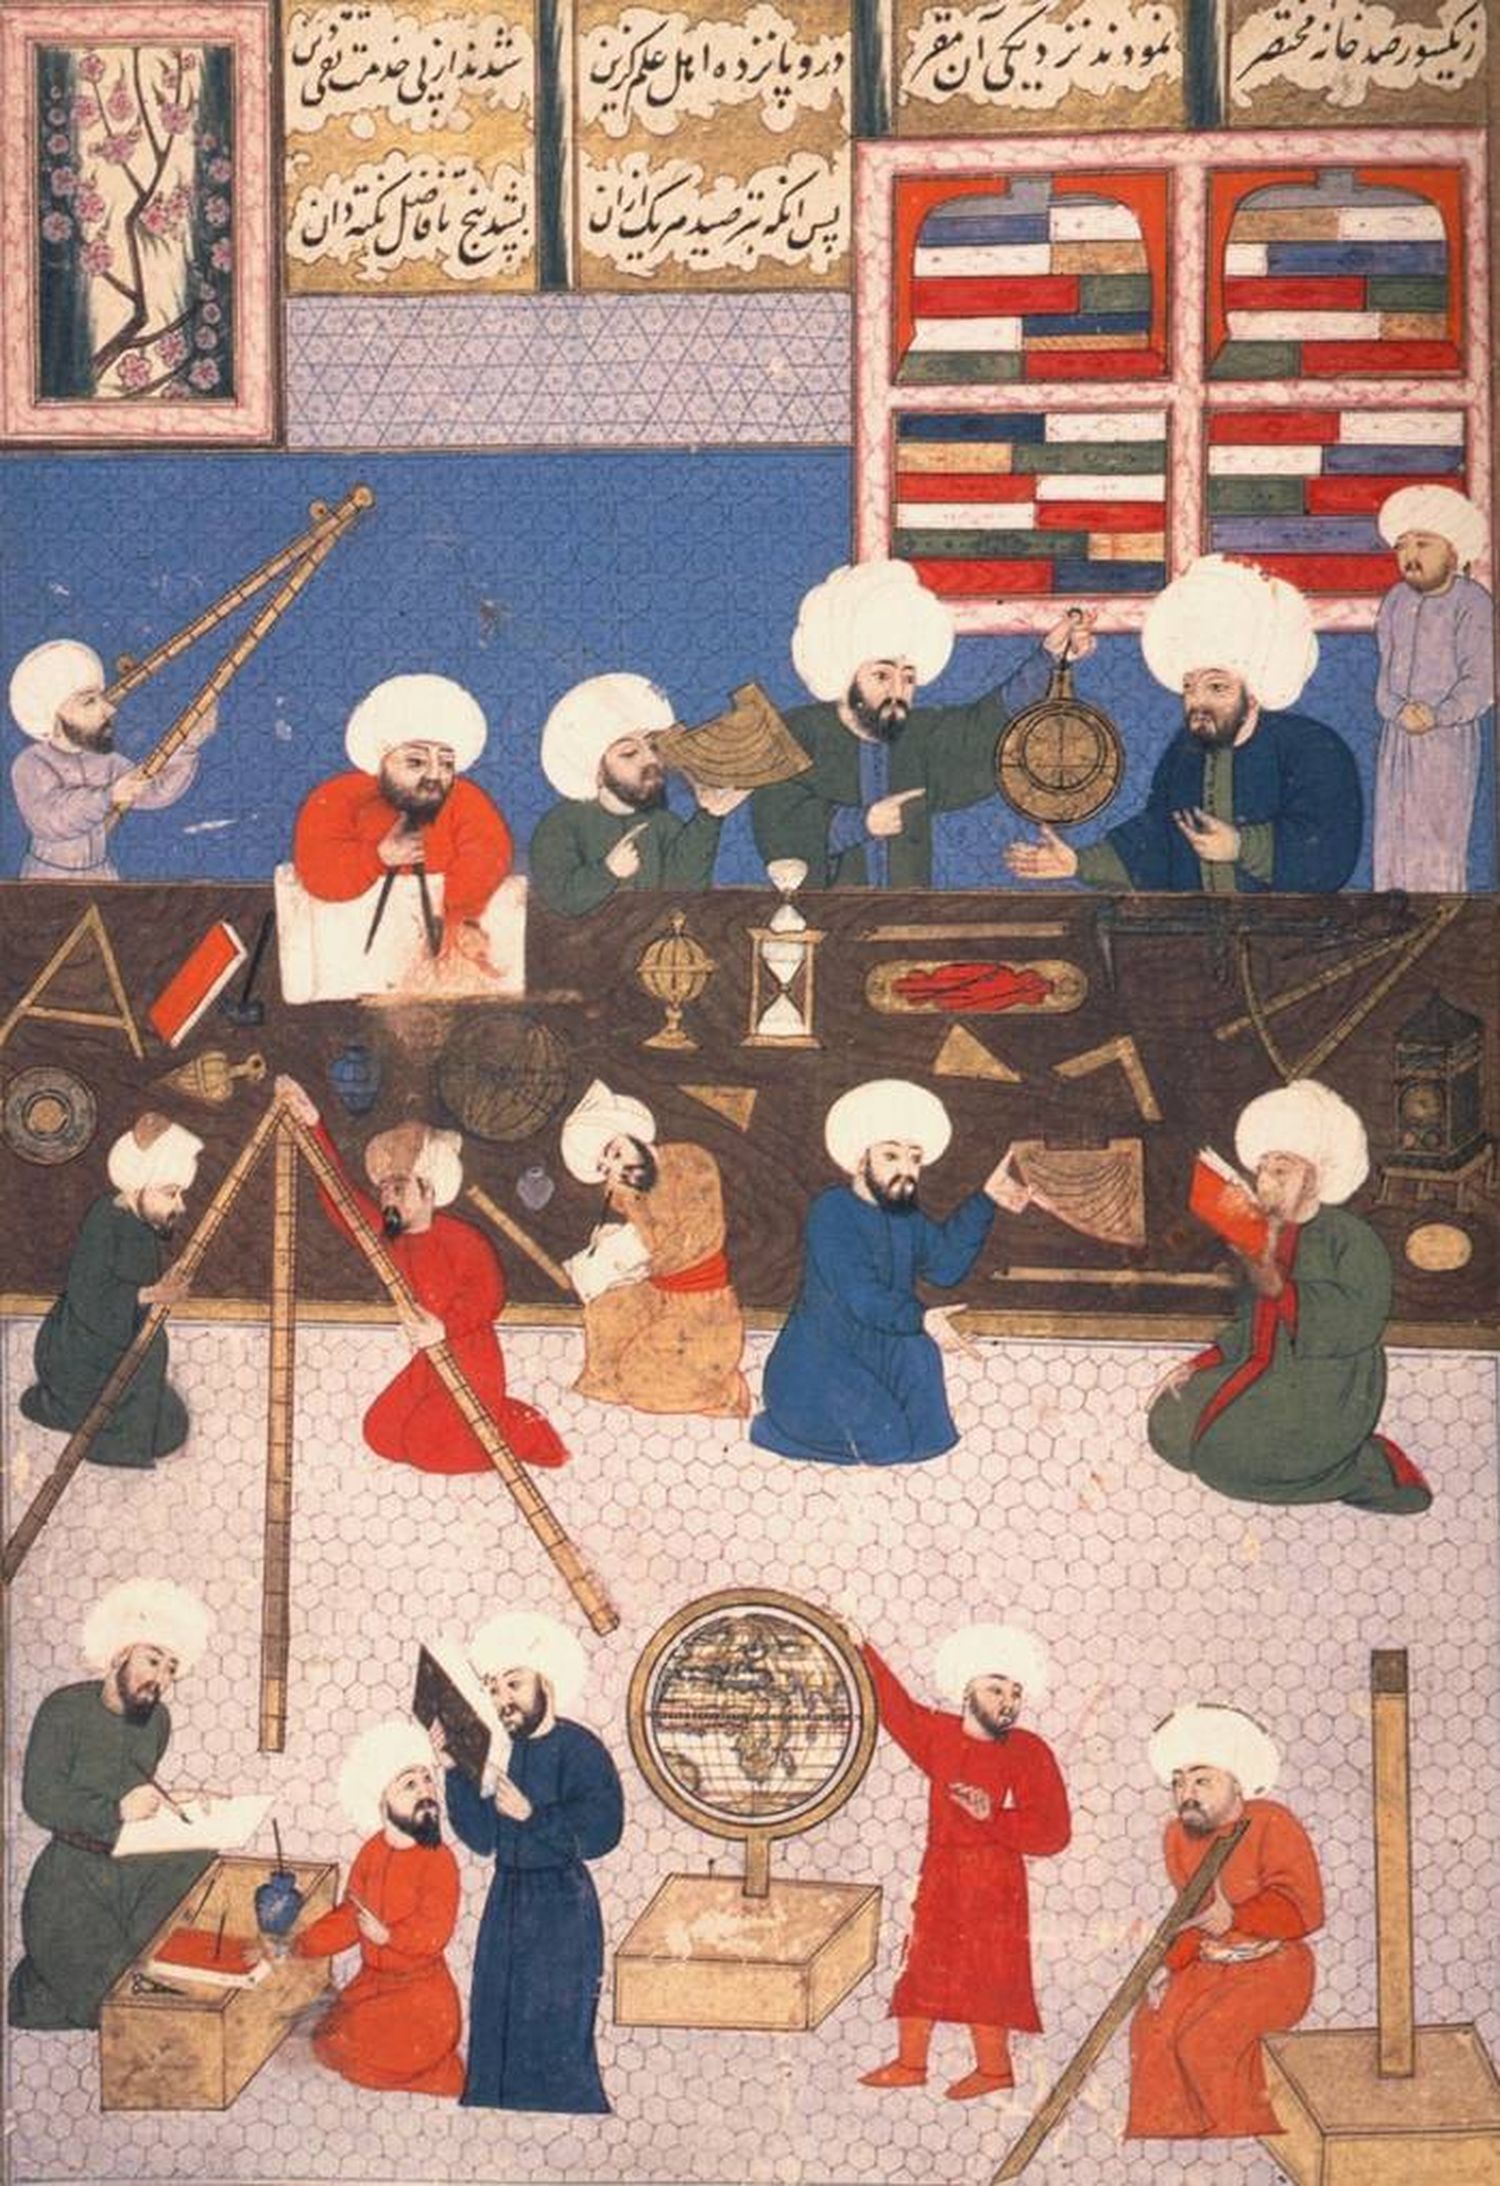 زیکسو رصد خانه مختصر نمودند نزدیکی آن مقر
درو پانزده اهل علم کزین شدند از پی خدمت تقی دین
پس انکه بترصید هر یک ازان بشد پنج تا فاضل نکته دان